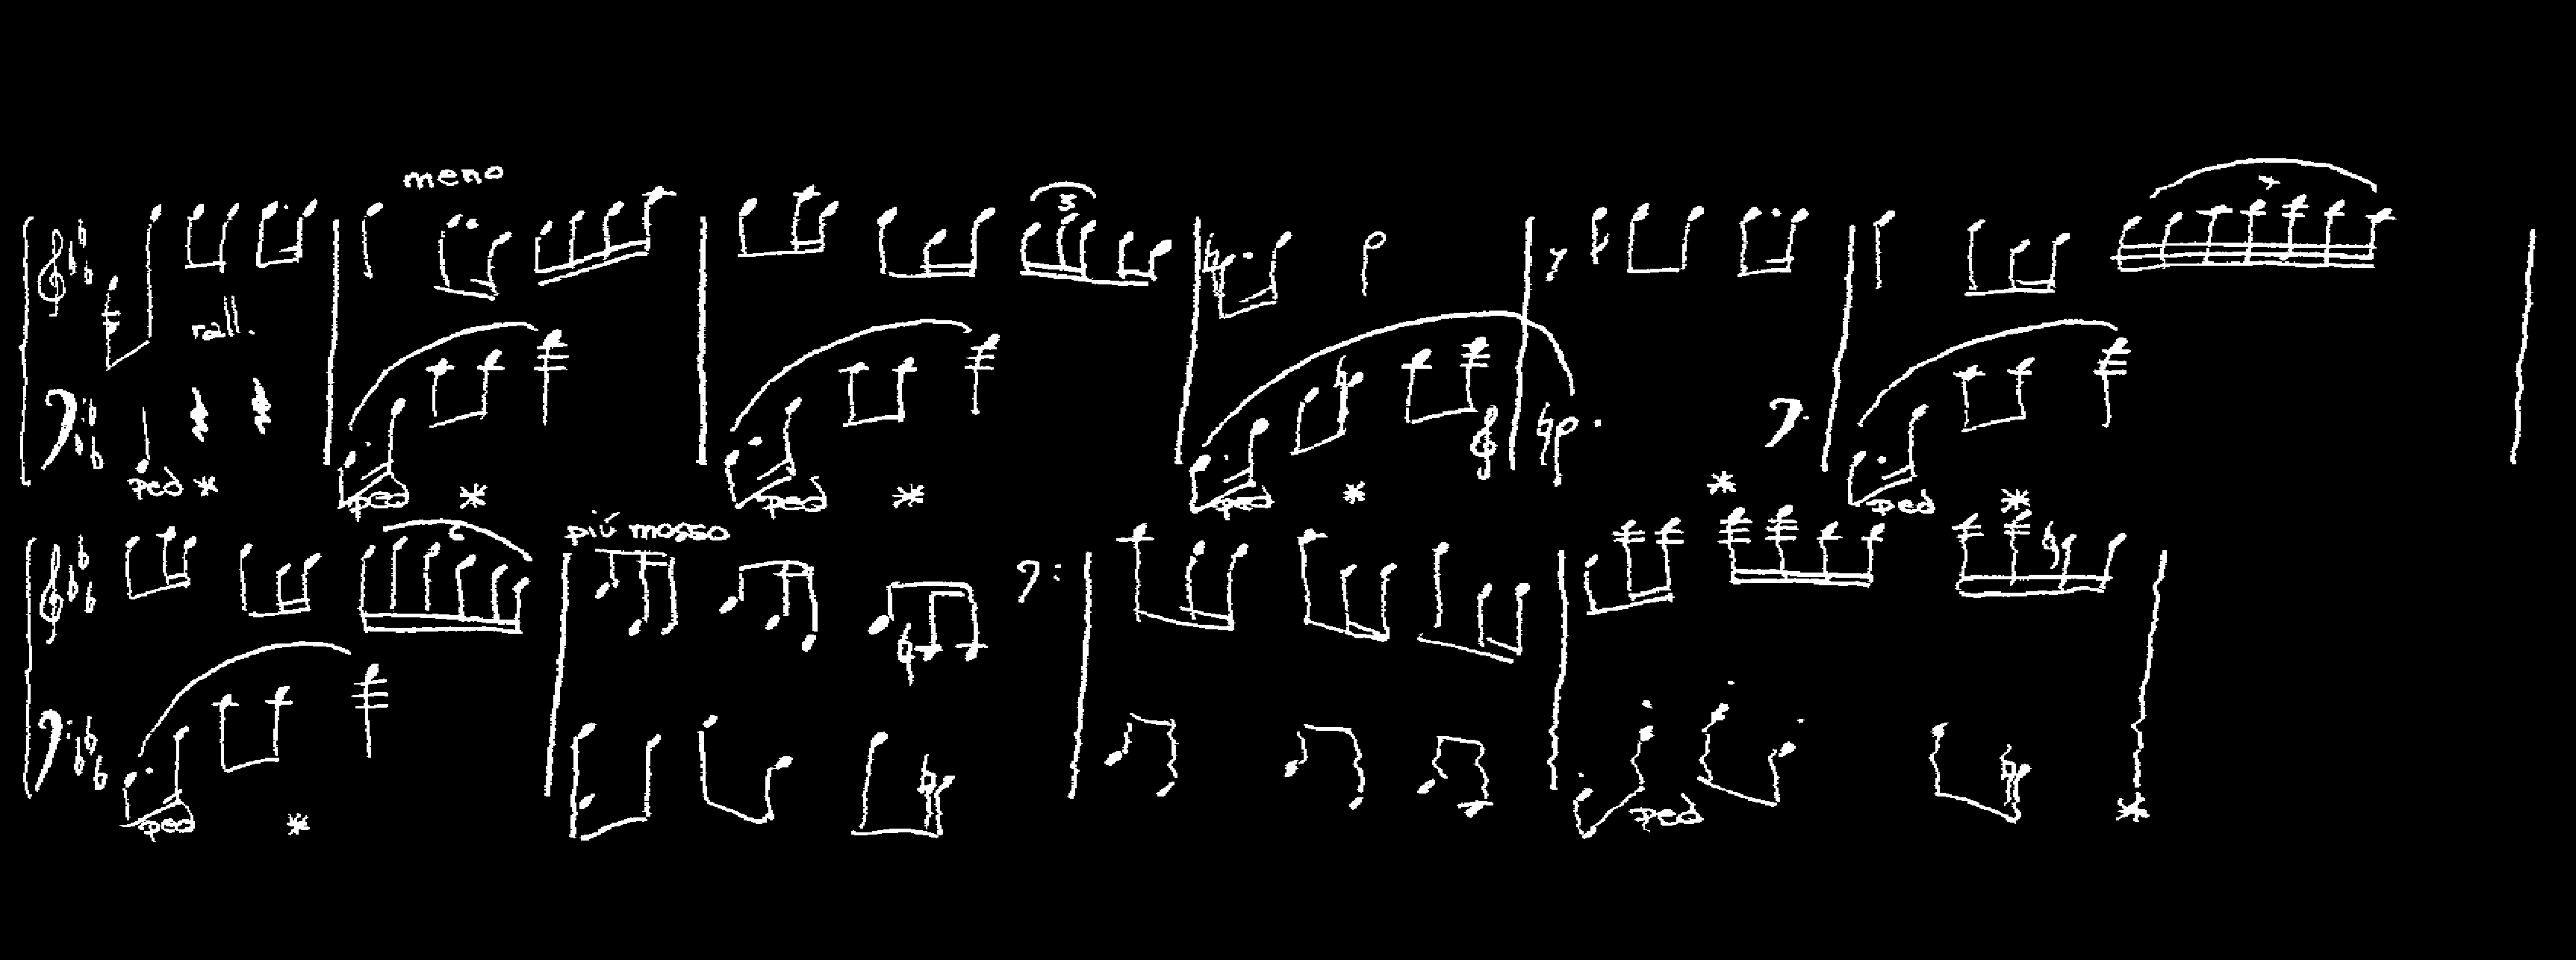 meno
3 7
rall.
ped * ped * ped * ped * * ped *
6 più mosso
ped * ped *